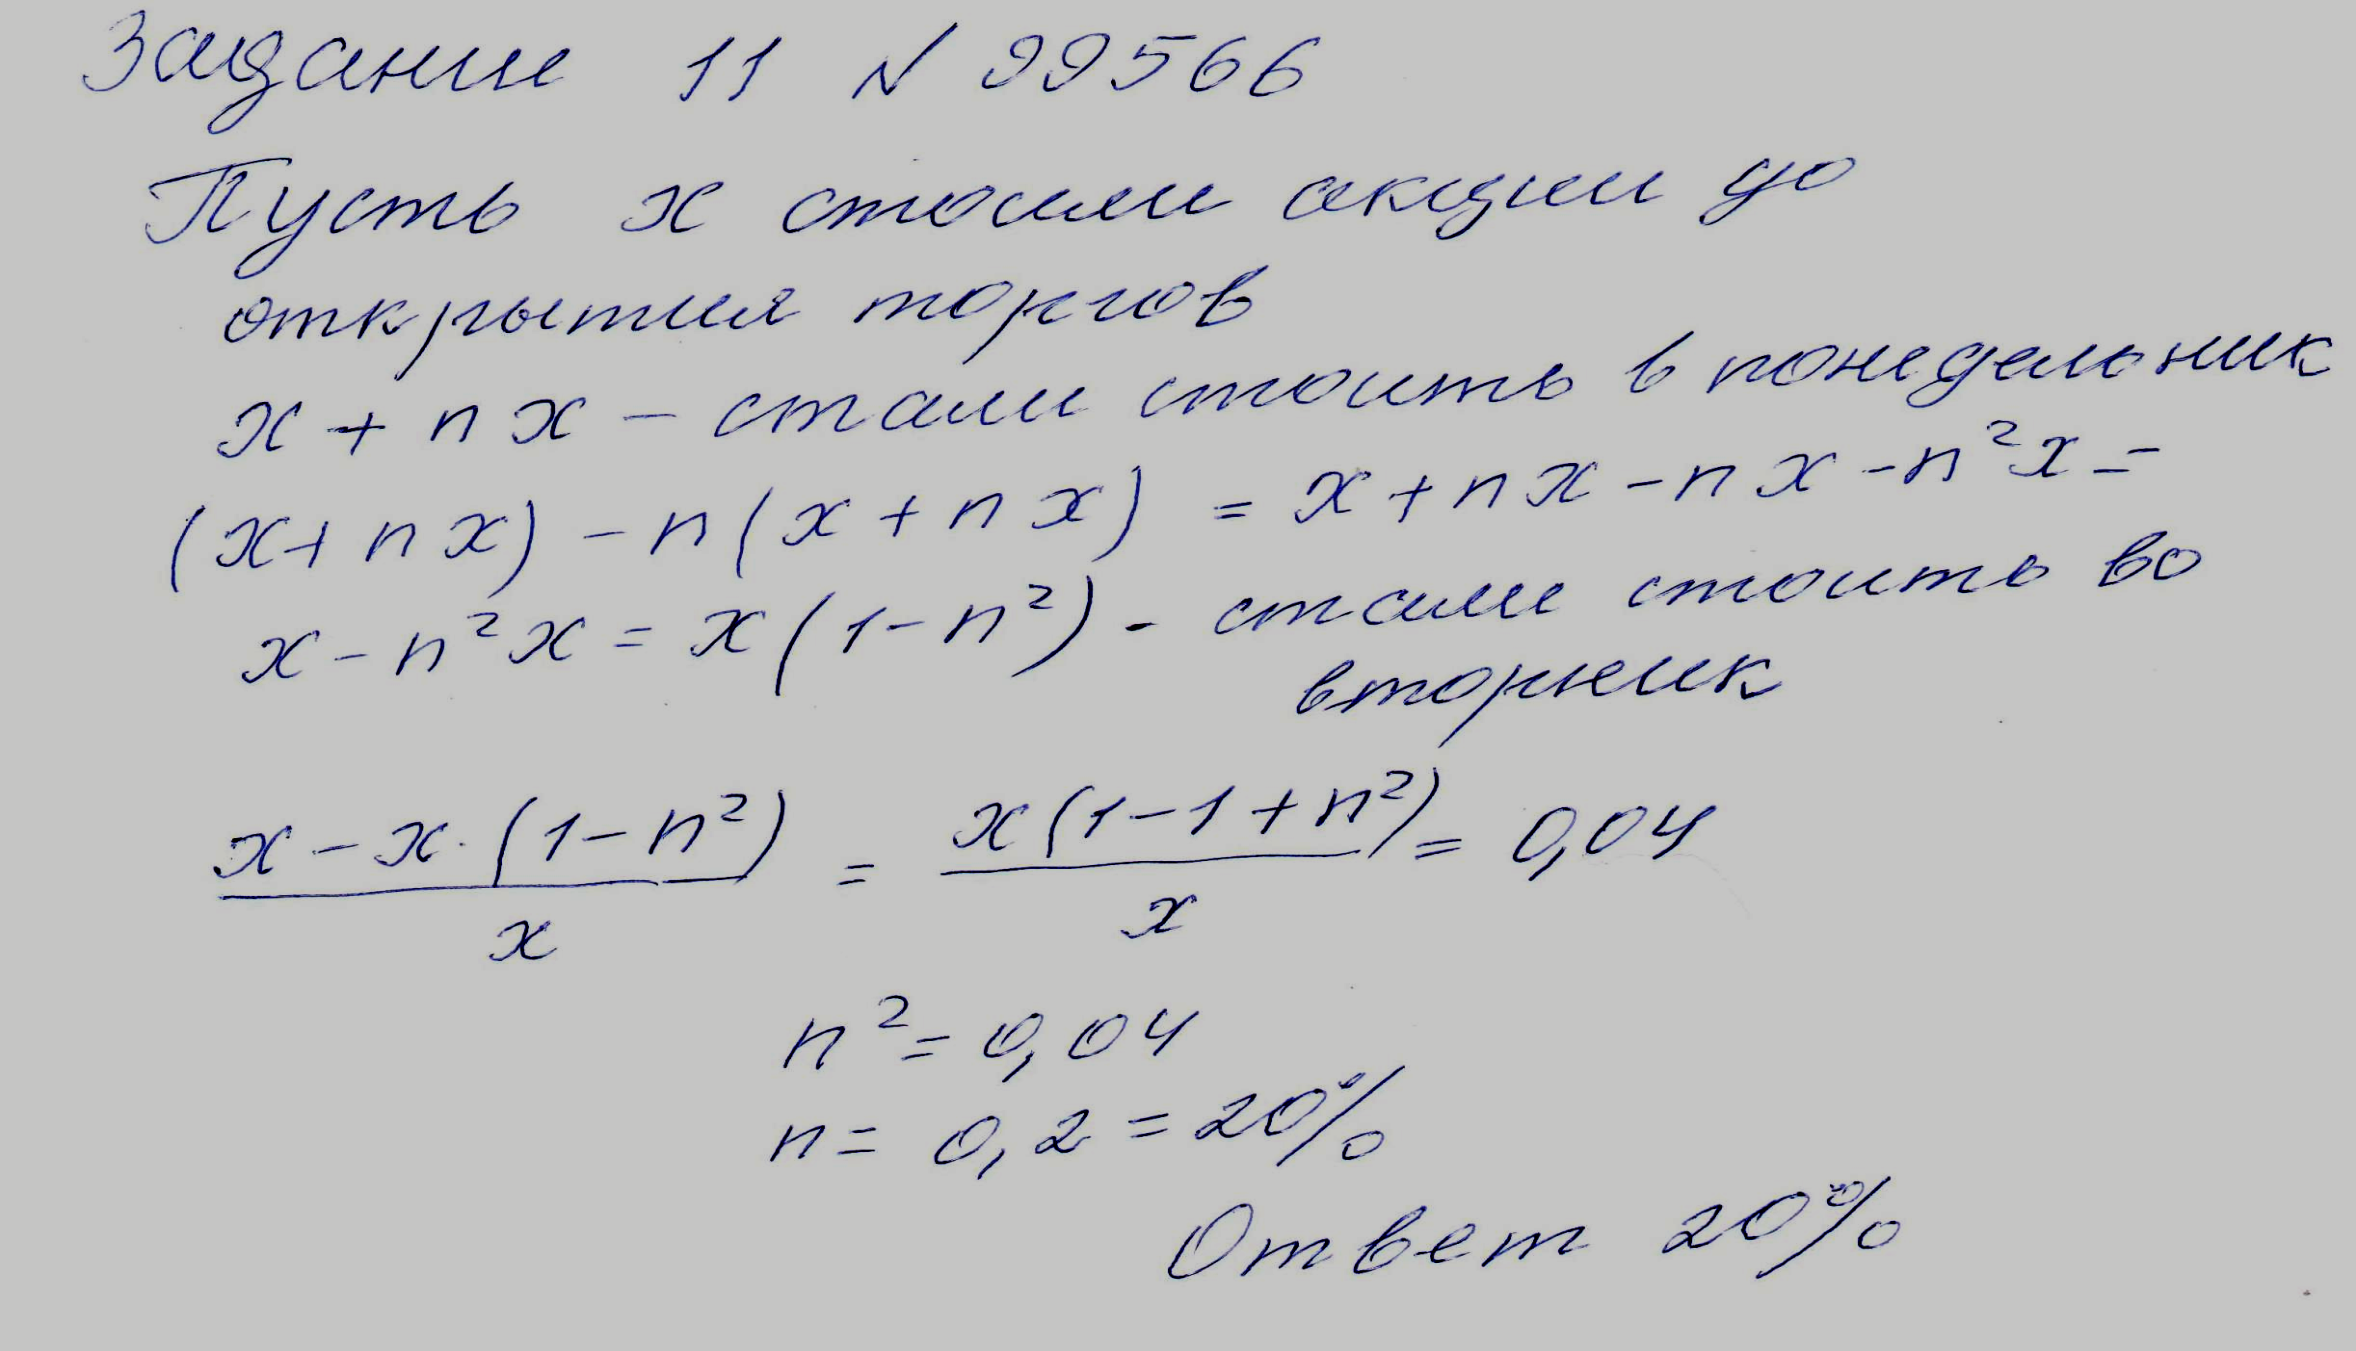 Задание 11 № 99566
Пусть x стоили акции до
открытия торгов
x + nx - стали стоить в понедельник
(x + nx) - n(x + nx) = x + nx - nx - n²x =
x - n²x = x(1 - n²) - стали стоить во
вторник
(x - x·(1 - n²))/x = x(1 - 1 + n²)/x = 0,04
n² = 0,04
n = 0,2 = 20%
Ответ 20%